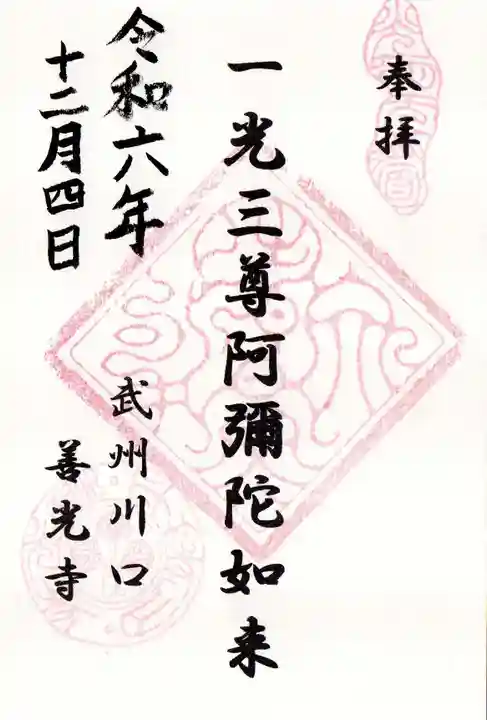 奉拝
一光三尊阿彌陀如来
令和六年
十二月四日
武州川口
善光寺